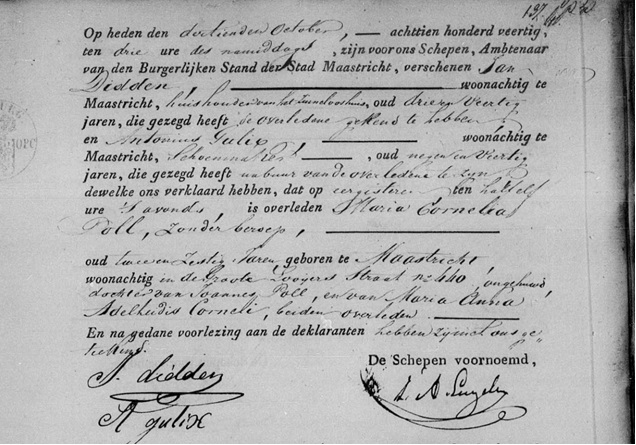 137.
Op heden den dertienden October, — achttien honderd veertig,
ten drie ure des namiddags, zijn voor ons Schepen, Ambtenaar
van den Burgerlijken Stand der Stad Maastricht, verschenen Jan
Didden, woonachtig te
Maastricht, huishouder van het Zinneloshuis, oud drie en Veertig
jaren, die gezegd heeft de overledene gekend te hebben
en Antonius Gulix woonachtig te
Maastricht, Schoenmaker, oud negen en Veertig
jaren, die gezegd heeft nabuur van de overledene te zijn
dewelke ons verklaard hebben, dat op eergisteren ten half elf
ure 's avonds, is overleden Maria Cornelia
Poll, zonder beroep,
oud twee en Zestig Jaren geboren te Maastricht
woonachtig in de Groote Looyers Straat no 440, ongehuwd
dochter van Joannes Poll, en van Maria Anna
Adelheidis Corneli, beiden overleden.
En na gedane voorlezing aan de deklaranten hebben zij met ons ge-
teekend.
De Schepen voornoemd,
J. didden
A gulix